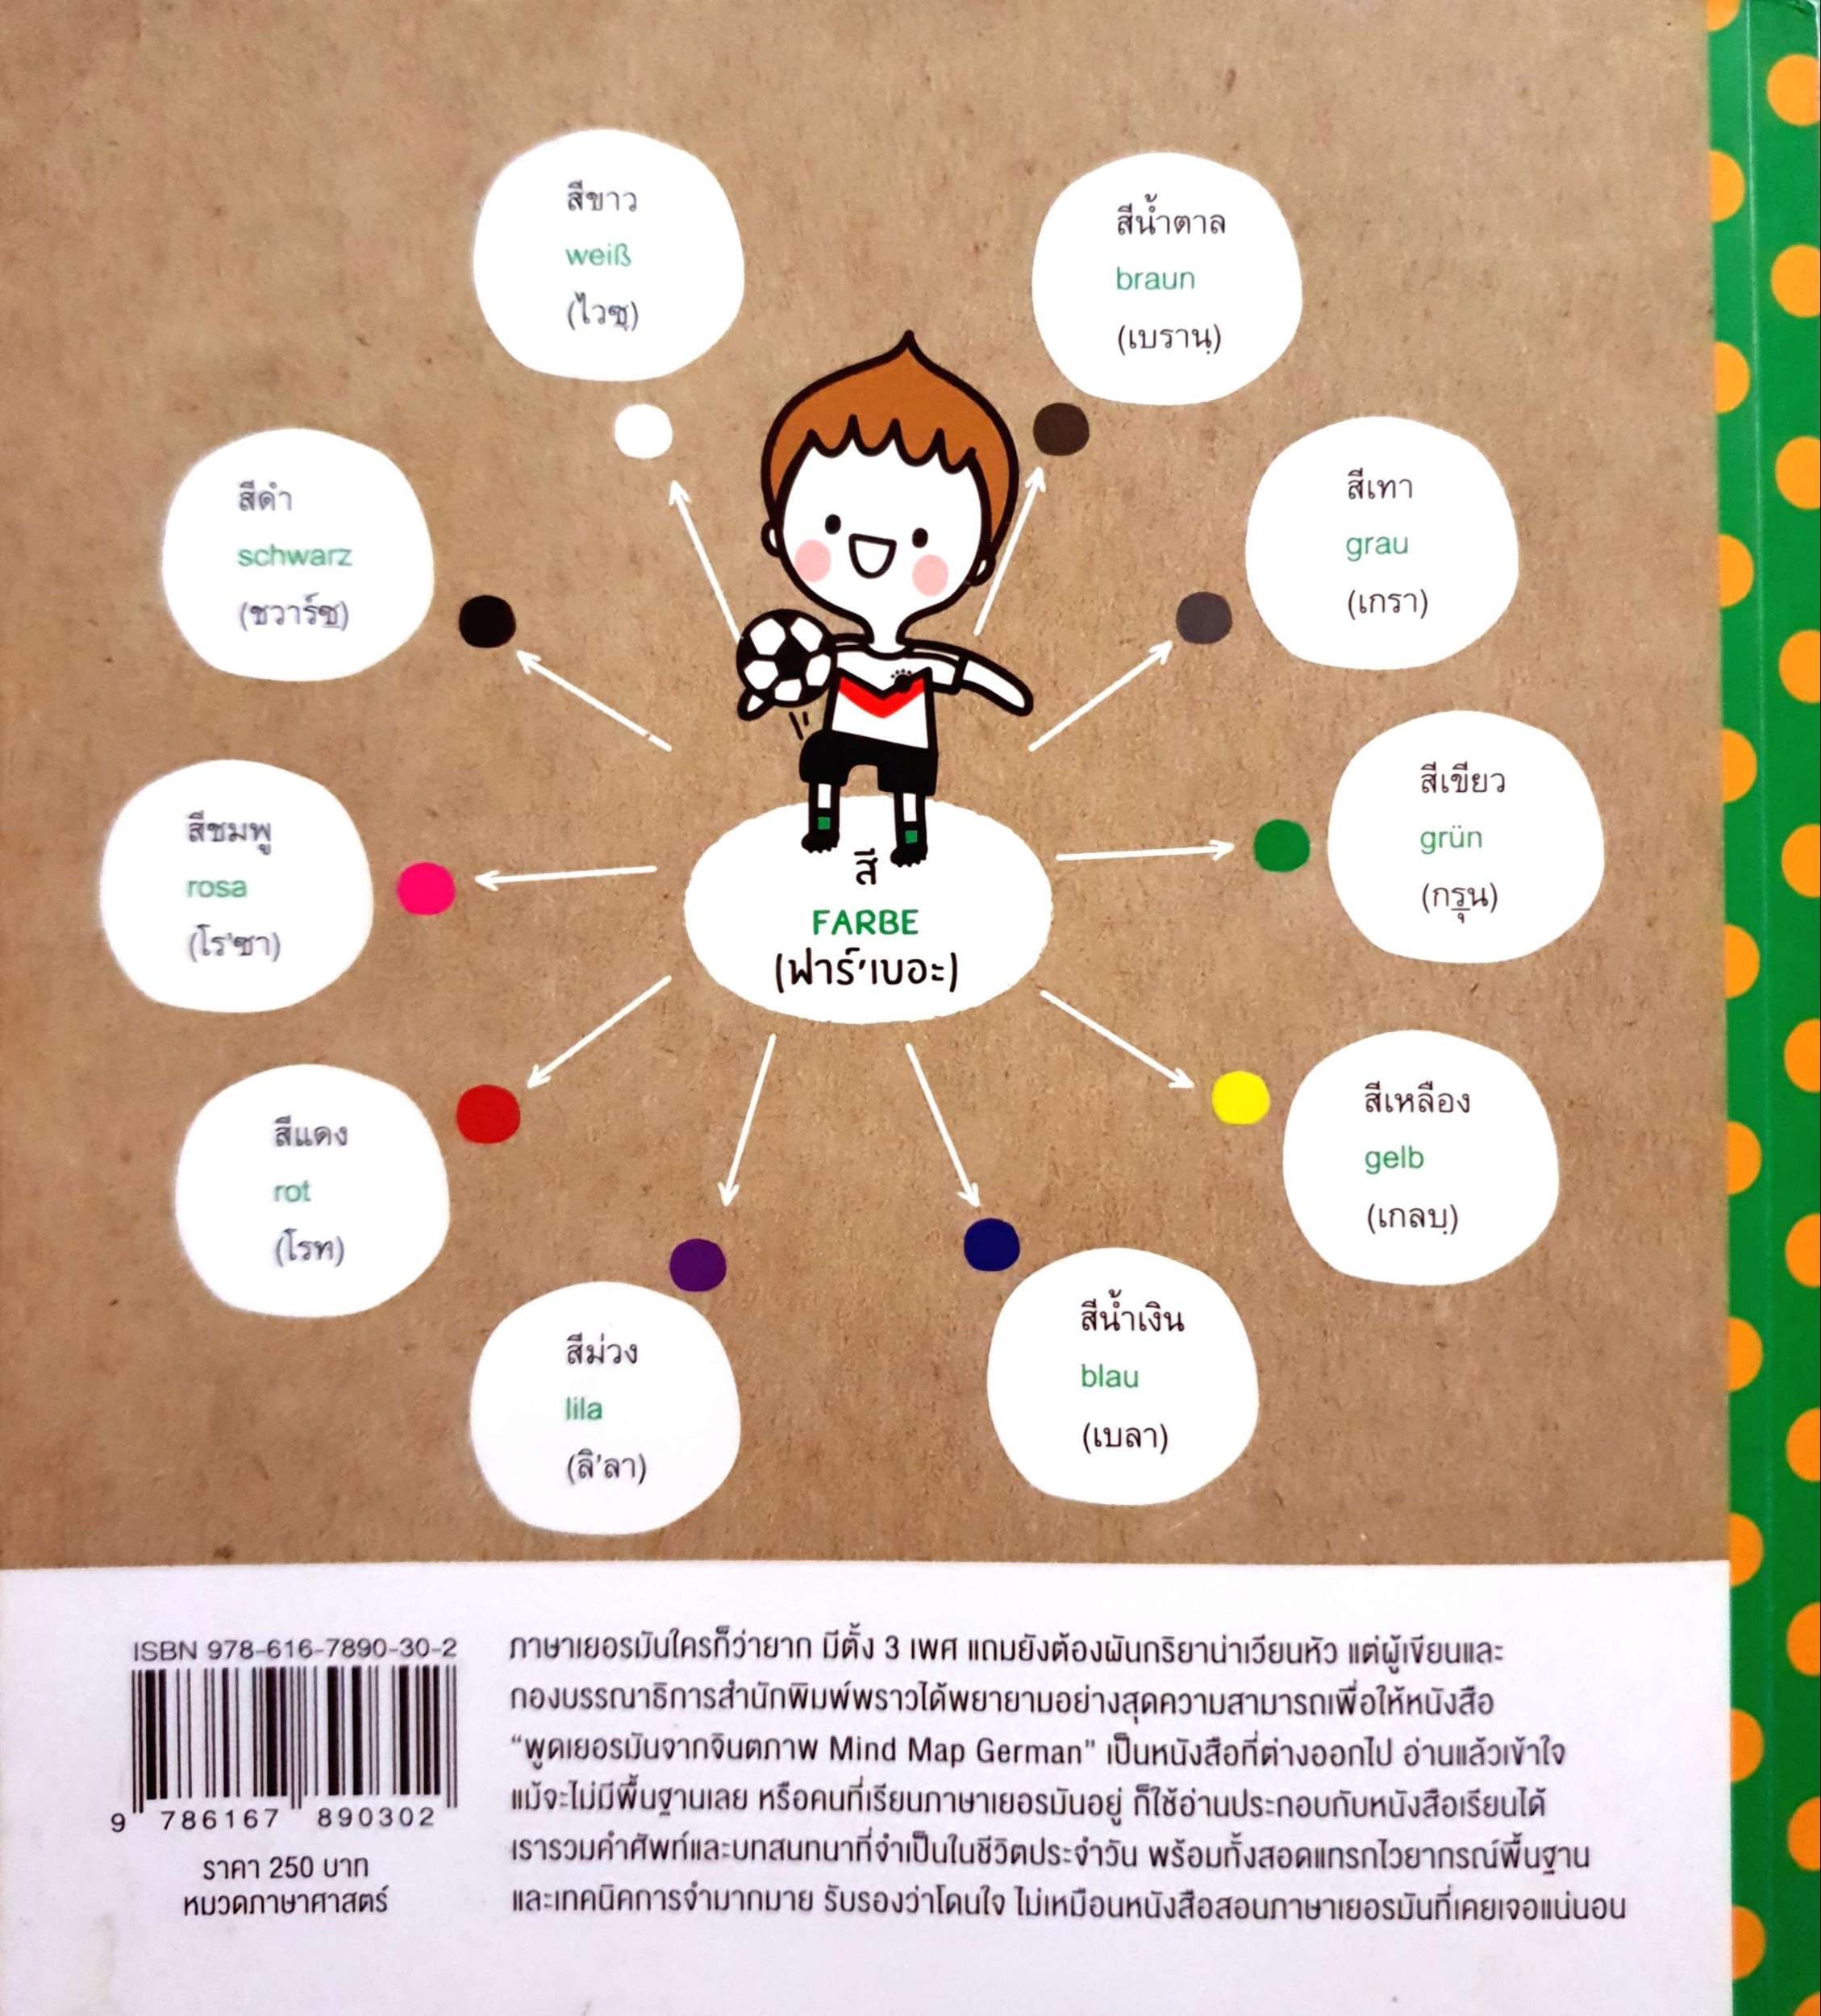 สีขาว
weiß
(ไวซฺ)
สีน้ำตาล
braun
(เบรานฺ)
สีดำ
schwarz
(ชวาร์ซฺ)
สีเทา
grau
(เกรา)
สีชมพู
rosa
(โร'ซา)
สี
FARBE
(ฟาร์'เบอะ)
สีเขียว
grün
(กรฺุน)
สีแดง
rot
(โรท)
สีเหลือง
gelb
(เกลบฺ)
สีม่วง
lila
(ลิ'ลา)
สีน้ำเงิน
blau
(เบลา)
ISBN 978-616-7890-30-2
9 786167 890302
ราคา 250 บาท
หมวดภาษาศาสตร์
ภาษาเยอรมันใครก็ว่ายาก มีตั้ง 3 เพศ แถมยังต้องผันกริยาน่าเวียนหัว แต่ผู้เขียนและ
กองบรรณาธิการสำนักพิมพ์พราวได้พยายามอย่างสุดความสามารถเพื่อให้หนังสือ
“พูดเยอรมันจากจินตภาพ Mind Map German" เป็นหนังสือที่ต่างออกไป อ่านแล้วเข้าใจ
แม้จะไม่มีพื้นฐานเลย หรือคนที่เรียนภาษาเยอรมันอยู่ ก็ใช้อ่านประกอบกับหนังสือเรียนได้
เรารวมคำศัพท์และบทสนทนาที่จำเป็นในชีวิตประจำวัน พร้อมทั้งสอดแทรกไวยากรณ์พื้นฐาน
และเทคนิคการจำมากมาย รับรองว่าโดนใจ ไม่เหมือนหนังสือสอนภาษาเยอรมันที่เคยเจอแน่นอน